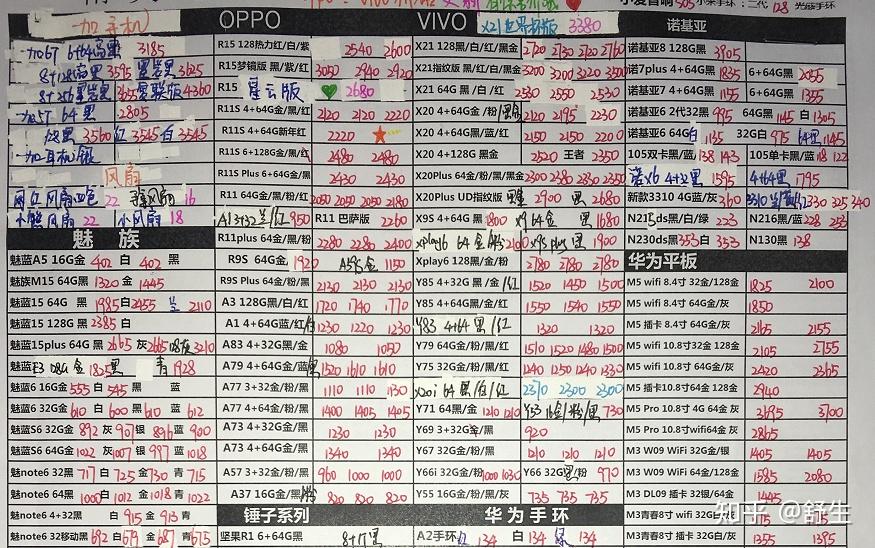 一加手机
OPPO
VIVO
X21世界杯版 3380
诺基亚
一加6T 6+64亮黑 3185
8+128亮黑 3595 墨岩黑 3625
R15 128热力红/白/紫 2540 2600
R15梦镜版 黑/紫/红 3050 2940 2920
R15 星云版 2680
R11S 4+64G金/黑/红 2120 2120 2220
R11S 4+64G新年红 2220
R11S 6+128G金/黑/红 2480 2480
R11S Plus 6+64G黑/红 2430 2430
R11 64G金/黑/粉/红 2050 2050 2050 2180
A1 3+32兰/红 950 R11 巴萨版 2260
R11plus 64金/黑/粉 2280 2280 2400
R9S 64G金 1920 A59S金 1150
R9S Plus 64金/黑/粉 2130 2130 2130
A3 128G黑/白/红 1720 1740 1770
A1 4+64G蓝/红/白 1230 1220 1230
A83 4+32G金/黑 1080 1050
A79 4+64G金/蓝黑 1520 1610 1610
A77 3+32金/粉/黑 1110 1110 1130
A77 4+64金/粉/黑 1400 1405 1405
A73 4+32G金/黑 1230 1230
A73 4+64G金/黑 1340 1340
A57 3+32金/粉/黑 960 1000 1000
A37 16G金/黑/粉 820 820 820
锤子系列
坚果R1 6+64G黑
X21 128黑/白/红/黑金 2720 2730 2720 2760
X21指纹版 黑/红/白/黑金 3200 3200 3220 3500
X21 64G 黑/白/红 2530 2550 2530
X20 4+64G金/粉/黑 2120 2195 2230
X20 4+64G黑/蓝/红 2150 2150 2200
X20 4+128G 黑金 2520 王者 2350
X20Plus 64金/粉/黑/黑金 2300 2380 2380 2350
X20Plus UD指纹版 金 2900 黑 2680
X9S 4+64G黑 1800 X9 64金 黑 1680
xplay6 64 金/粉 2100 X9S plus 黑 1900
Xplay6 128黑/金/粉 2780 2780 2780
Y85 4+32G黑/金/红 1520 1450 1500
Y85 4+64G黑/金/红 1550 1540 1550
Y83 4+64 黑/红 1320 1320
Y79 64G金/粉/黑/红 1510 1520 1480 1500
Y75 32G金/粉/黑/红 1240 1250 1240 1330
X20i 64黑/白/红 2310 2300 2300
Y71 64黑/金 1210 1210 Y53 16金/粉/黑 730
Y69 3+32G金/黑 920
Y67 32G金/粉/黑 1210 1210 1210
Y66i 32G金/粉 1000 1030 Y66 32G黑/粉 970
Y55 16G金/粉/黑/灰 735 735 735
华为手环
A2手环 红 134 白 134 绿 134
诺基亚8 128G黑 3905
诺7plus 4+64G黑 1835 6+64G黑 2055
诺基亚7 4+64G黑 1255 6+64G黑 1355
诺基亚6 2代32黑 995 64G黑 1145 白 1305
诺基亚6 64G白 1135 32G白 975 64黑 1145
105双卡黑/蓝 138 143 105单卡黑/蓝 118 122
诺X6 4+32黑 1595 4+64黑 1795
新款3310 4G蓝/灰 360
N215ds黑/白/绿 223 N216黑/蓝 228 253
N230ds黑 353 白 353 N130黑 138
华为平板
M5 wifi 8.4寸 32金/128金 1825 2100
M5 wifi 8.4寸 64G金/灰 1850
M5 插卡 8.4寸 64金/灰 2165 2155
M5 wifi 10.8寸32金 128金 2105 2755
M5 wifi 10.8寸 64G金/灰 2420 2365
M5 插卡10.8寸64金 128金 2940
M5 Pro 10.8寸 4G 64金 灰 3695 3700
M5 Pro 10.8寸wifi64金 灰 2865
M3 W09 WiFi 32G金/银 1405 1405
M3 W09 WiFi 64金/128金 1585 2080
M3 DL09 插卡 32银/64金 1445
M3青春8寸 wifi 32G白/灰
M3青春8寸 插卡 32G白/灰 1355 1385
风扇
网红风扇四色 22 16
小熊风扇 22 小风扇 18
魅族
魅蓝A5 16G金 402 白 402 黑
魅族M15 64G黑 1320 金 1445
魅蓝15 64G 黑 1985 白 2455 兰 2110
魅蓝15 128G 黑 2385 白
魅蓝15plus 64G黑 2665 灰 2665 128灰 3210
魅蓝E3 128G 金 1825 黑 青 1928
魅蓝6 16G金 555 白 545 黑 蓝
魅蓝6 32G金 610 白 600 黑 610 蓝 612
魅蓝S6 32G金 892 灰 907 银 896 蓝 900
魅蓝S6 64G金 1022 灰 1007 银 997 蓝 1018
魅蓝note6 32黑 717 白 725 金 730 青 715
魅蓝note6 64黑 1000 白 1012 金 1018 青 1022
魅蓝note6 4+32黑 白 915 金 913 青
魅蓝note6 32移动黑 692 白 679 金 687 青 675
知乎 @舒生